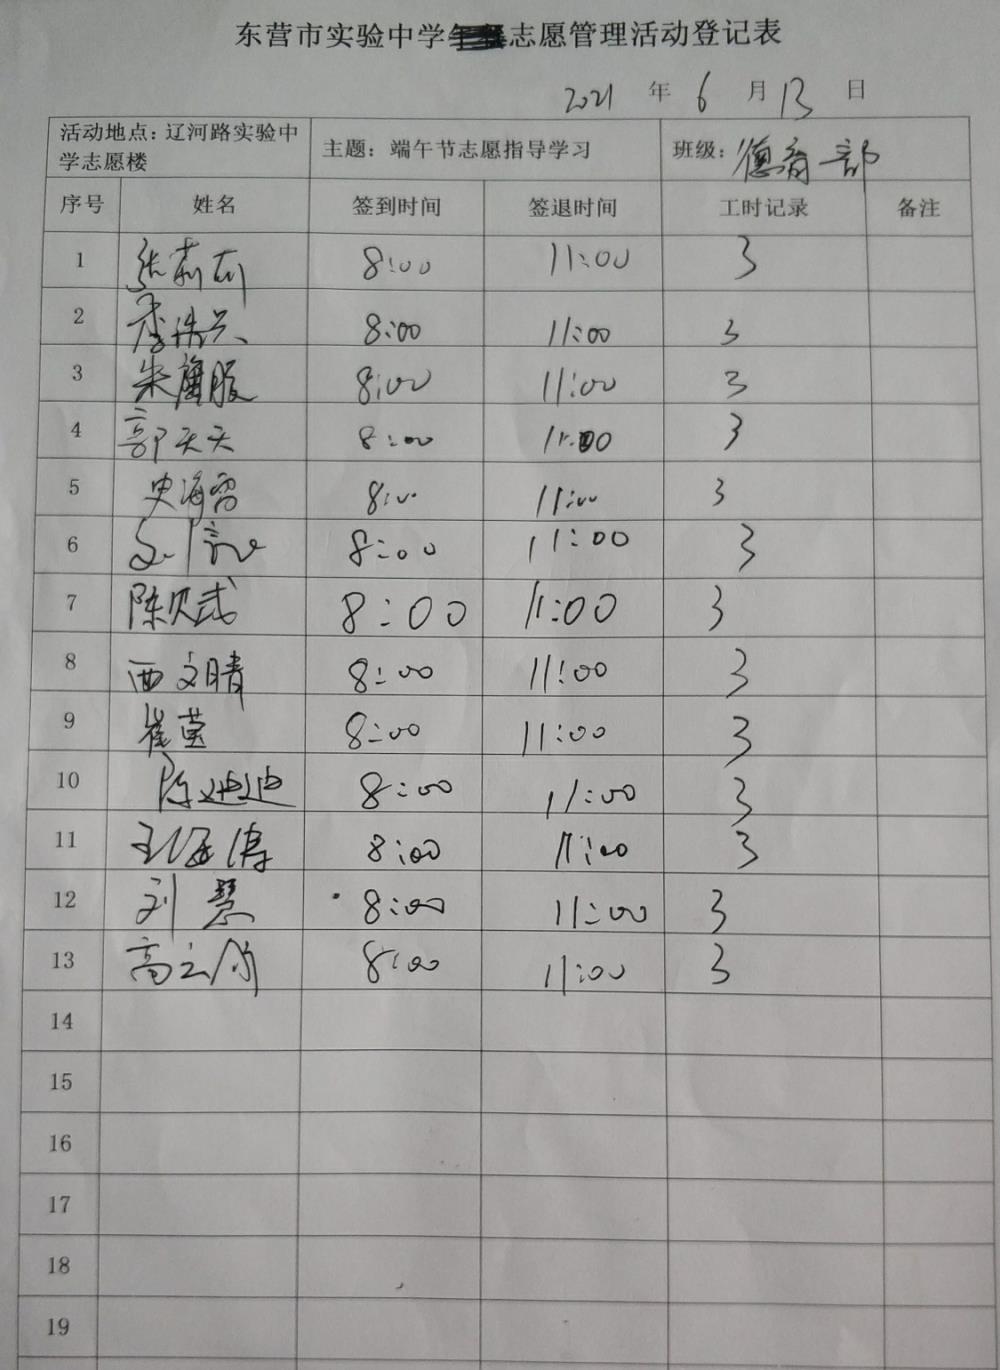 东营市实验中学志愿管理活动登记表
2021 年 6 月 13 日
活动地点：辽河路实验中学志愿楼 主题：端午节志愿指导学习 班级：德育部
序号 姓名 签到时间 签退时间 工时记录 备注
1 张莉莉 8:00 11:00 3
2 李 8:00 11:00 3
3 朱 8:00 11:00 3
4 郭天天 8:00 11:00 3
5 史海雷 8:00 11:00 3
6 8:00 11:00 3
7 陈贝武 8:00 11:00 3
8 西文晴 8:00 11:00 3
9 崔莹 8:00 11:00 3
10 陈迪迪 8:00 11:00 3
11 王海涛 8:00 11:00 3
12 刘慧 8:00 11:00 3
13 高云 8:00 11:00 3
14
15
16
17
18
19